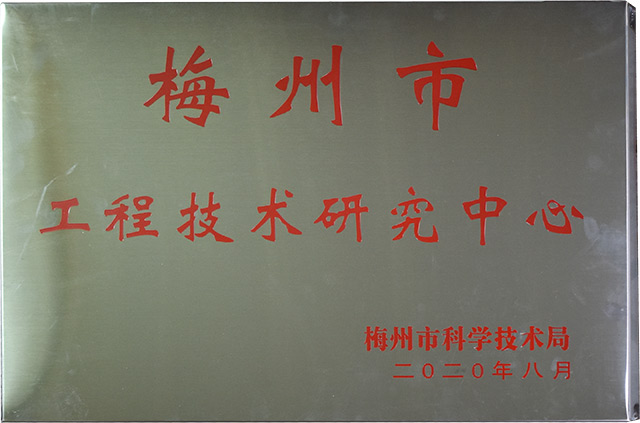 梅州市
工程技术研究中心
梅州市科学技术局
二〇二〇年八月